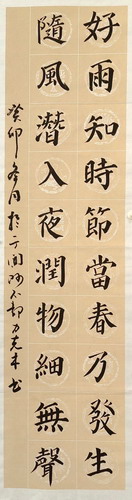 好雨知時節當春乃發生
隨風潛入夜潤物細無聲
癸卯冬月於